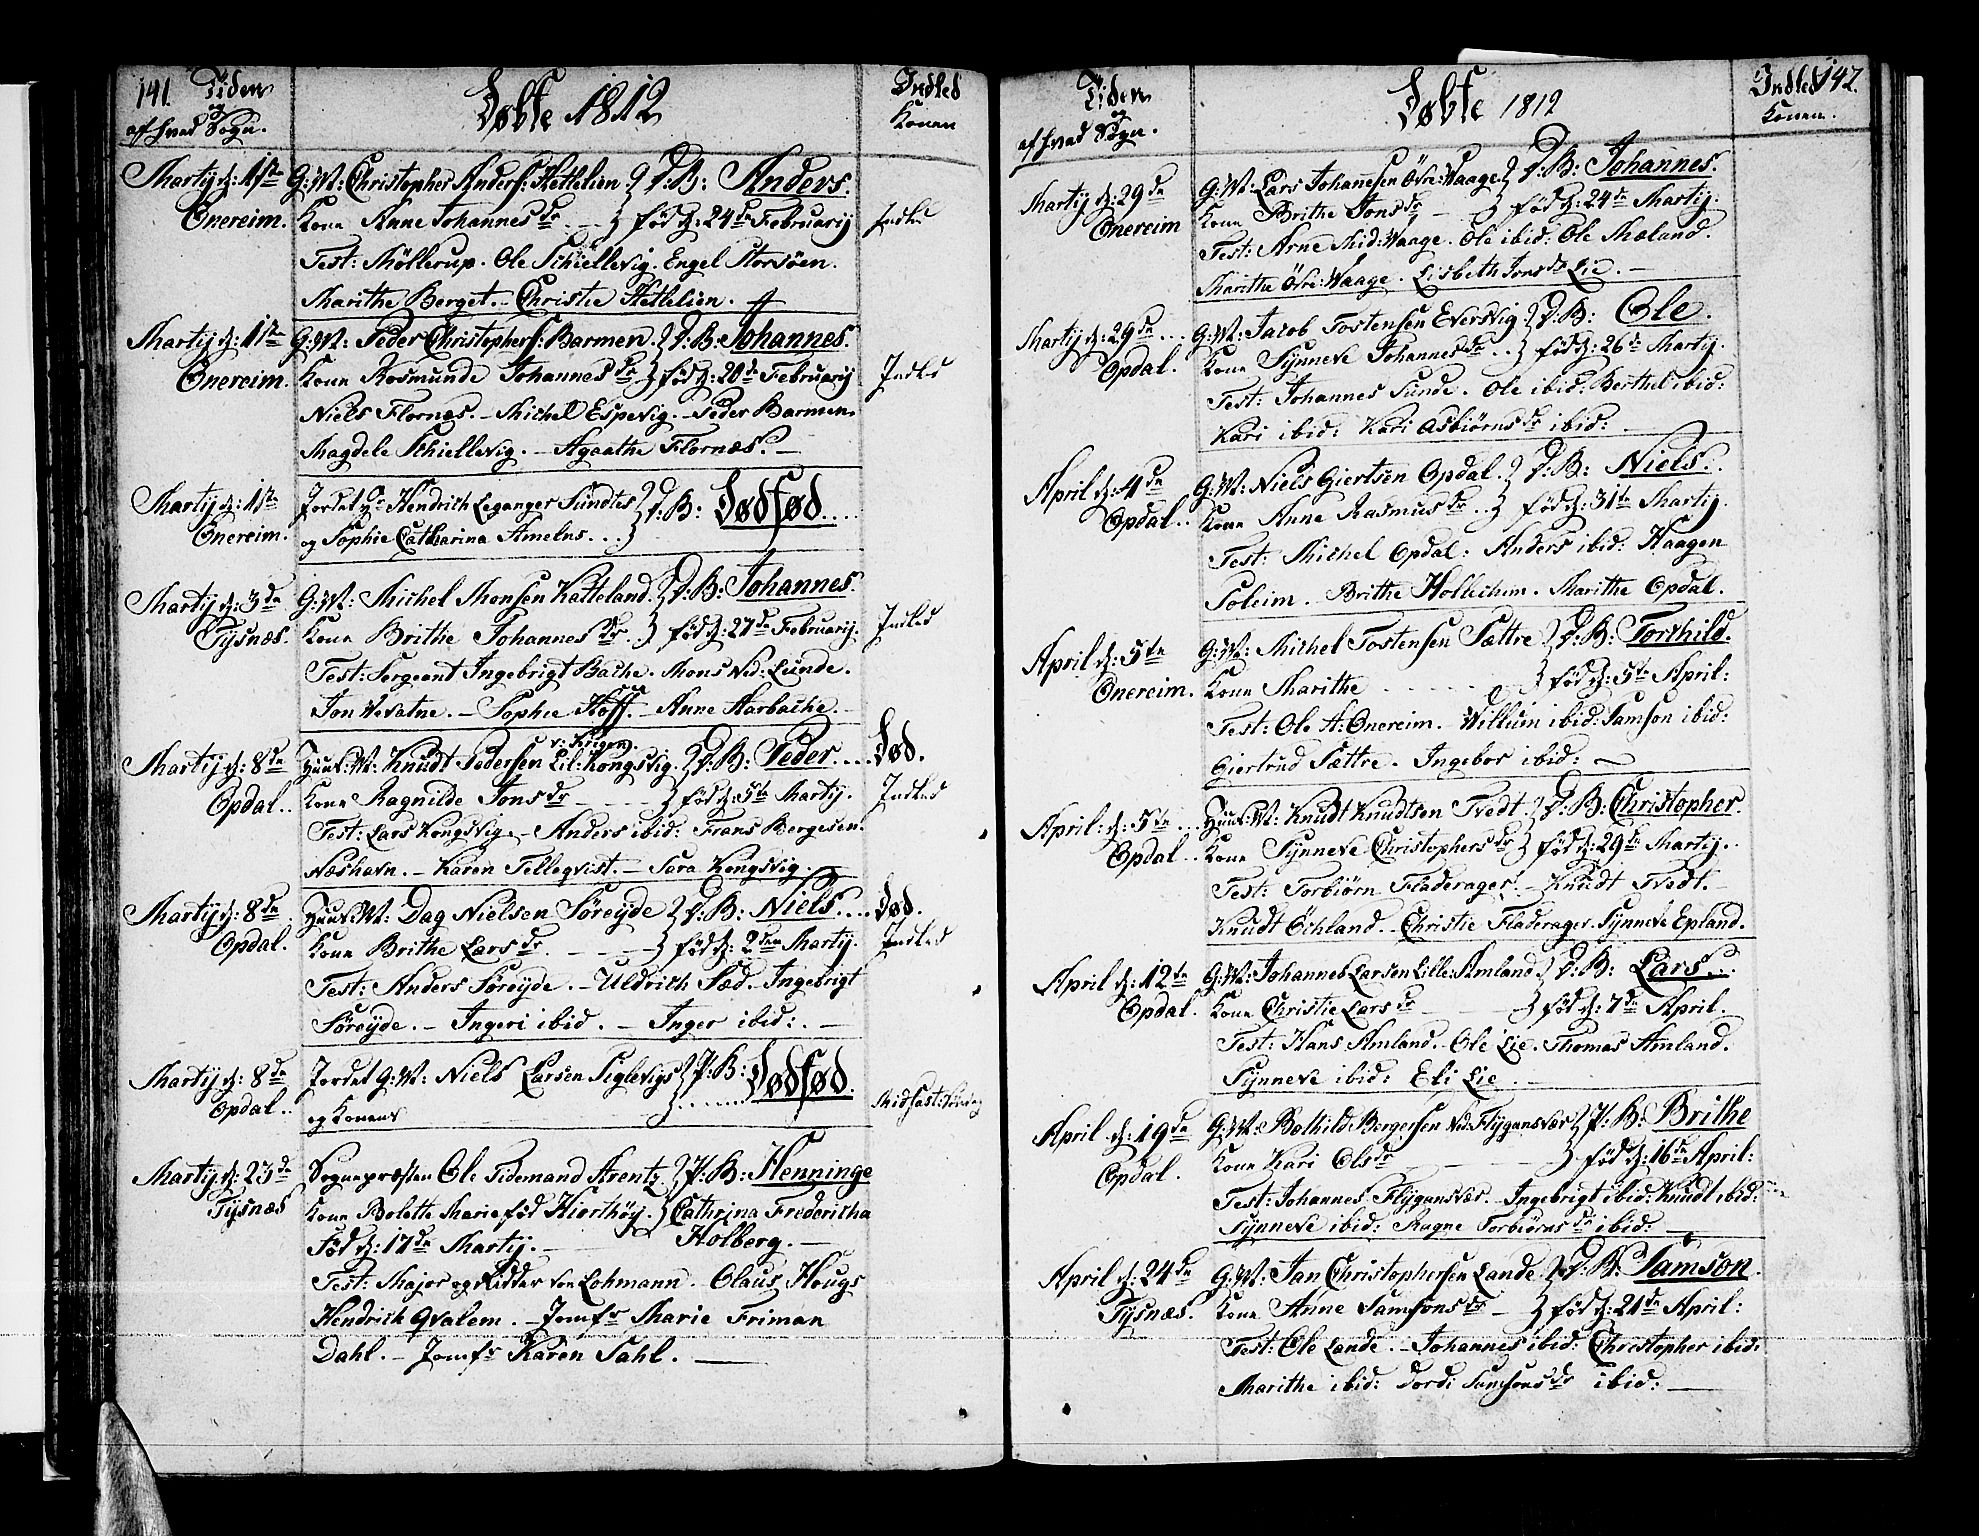 141. Tiden
og
af hvad Sogn.
Døbte 1812
Indled
Konen
Martij d: 1ste G: M: Christopher Anders: Hetlelien D: B: Anders.
Onereim. Kone Anne Johannes dr fød d: 24de Februarij Indled
Test: Møllerup. Ole Schiellevig. Engel Storsöen.
Marithe Berget. Christie Hetlelien.
Martij d: 1ste G: M: Peder Christophers: Barmen. D: B: Johannes.
Onereim. Kone Rosmunde Johannes dr fød d: 20de Februarij Indled
Niels Flornæs. Michel Espevig. Peder Barmen.
Magdele Schiellevig. Agaathe Flornæs.
Martij d: 1ste Jordet Hr Hendrich Leganger Sundts D: B: Dødfød
Onereim. og Sophie Catharina Amelns
Martij d: 3de G: M: Michel Monsen Katteland. D: B: Johannes.
Tysnæs. Kone Brithe Johannes dr fød d: 27de Februarij. Indled
Test: Sergeant Ingebrigt Bache. Mons Ned: Lunde.
Jon Vevatne. Sophie Hoff. Anne Harbache.
v: Krigen.
Martij d: 8de Huus: M: Knudt Pedersen Lil: Kongsvig. D: B: Peder. Død.
Opdal. Kone Ragnilde Jons dr fød d: 5te Martij. Indled
Test: Lars Kongsvig. Anders ibid: Frans Bergesen.
Næshavn. Karen Felleqvist. Sara Kongsvig.
Martij d: 8de Huus: M: Dag Nielsen Søreyde D: B: Niels. Død.
Opdal. Kone Brithe Lars dr fød d: 2den Martij. Indled
Test: Anders Søreyde. Uldrich Sæd. Ingebrigt
Søreyde. Ingeri ibid. Inger ibid:
Martij d: 8de Jordet G: M: Niels Larsen Siglevigs P: B: Dødfød.
Opdal. og Konens Midfast: Søndag
Martij d: 23de Sognepræsten Ole Tidemand Arentz P: B: Henninge
Tysnæs Kone Bolette Marie fød Hiorthöy. Cathrina Fredericha
Fød d: 17de Martij. Holberg.
Test: Major og Ridder von Lohmann. Claus Hougs
Hendrich Qvalem. Jomfr Marie Friman
Dahl. Jomfr Karen Sahl.
Tiden
og
af hvad Sogn.
Døbte 1812
Indled 142.
Konen.
Martij d: 29de G: M: Lars Johannesen Övre: Vaage D: B: Johannes.
Onereim Kone Brithe Jons dr fød d: 24de Martij.
Test: Arne Mid: Vaage. Ole ibid: Ole Mæland.
Marithe Övre: Vaage. Lisbeth Jonsdr Lie.
Martij d: 29de G: M: Jacob Tostensen Eversvig D: B: Ole.
Opdal. Kone Synneve Johannes dr fød d: 26de Martij.
Test: Johannes Sunde. Ole ibid: Berthel ibid:
Kari ibid: Kari Asbiørns dr ibid:
April d: 4de G: M: Niels Giertsen Opdal. D: B: Niels.
Opdal. Kone Anne Rasmus dr fød d: 31te Martij.
Test: Michel Opdal: Anders ibid: Haagen
Soleim. Brithe Hollechum. Marithe Opdal.
April d: 5te G: M: Michel Tostensen Sættre D: B: Torthild.
Onereim. Kone Marithe fød d: 5te April:
Test: Ole H: Onereim. Willum ibid: Samson ibid:
Giertrud Sættre. Ingebor ibid:
April: d: 5te Huus: M: Knudt Knudtsen Tvedt. D: B: Christopher.
Opdal. Kone Synneve Christophers dr fød d: 29de Martij.
Test: Torbiörn Fladerager. Knudt Tvedt.
Knudt Öchland. Christie Fladerager. Synneve Epland.
April d: 12te G: M: Johannes Larsen Lille: Amland D: B: Lars.
Opdal. Kone Christie Lars dr fød d: 7de April.
Test: Hans Amland. Ole Lie. Thomas Amland.
Synneve ibid: Eli Lie.
April d: 19de G: M: Bothild Bergersen Ned: Flygansvær P: B: Brithe
Opdal. Kone Kari Ols dr fød d: 16de April:
Test: Johannes Flygansvær. Ingebrigt ibid: Knudt ibid:
Synneve ibid: Magne Torbiørns dr ibid:
April d: 24de G: M: Jan Christophersen Lande. D: B: Samson.
Tysnæs. Kone Anne Samsons dr fød d: 21de April:
Test: Ole Lande. Johannes ibid: Christopher ibid:
Marithe ibid: Dordi Samsons dr ibid: